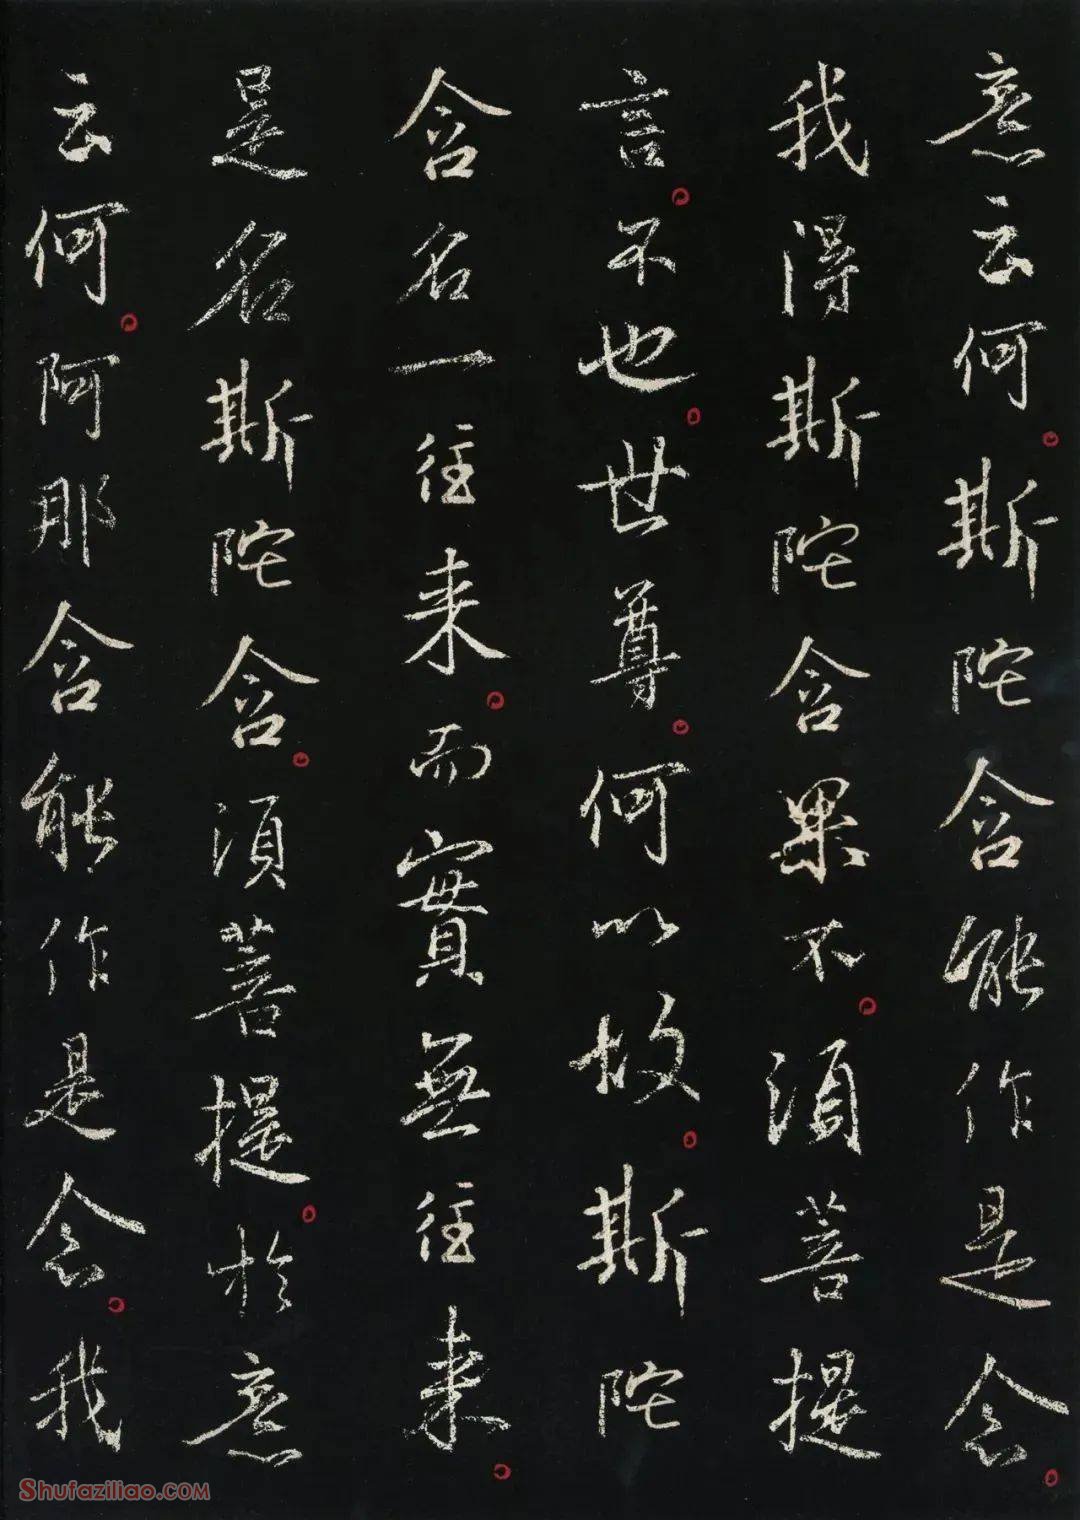 意云何。斯陀含能作是念。
我得斯陀含果不。須菩提
言。不也。世尊。何以故。斯陀
含名一往來。而實無往來。
是名斯陀含。須菩提。於意
云何。阿那含能作是念。我
Shufaziliao.com